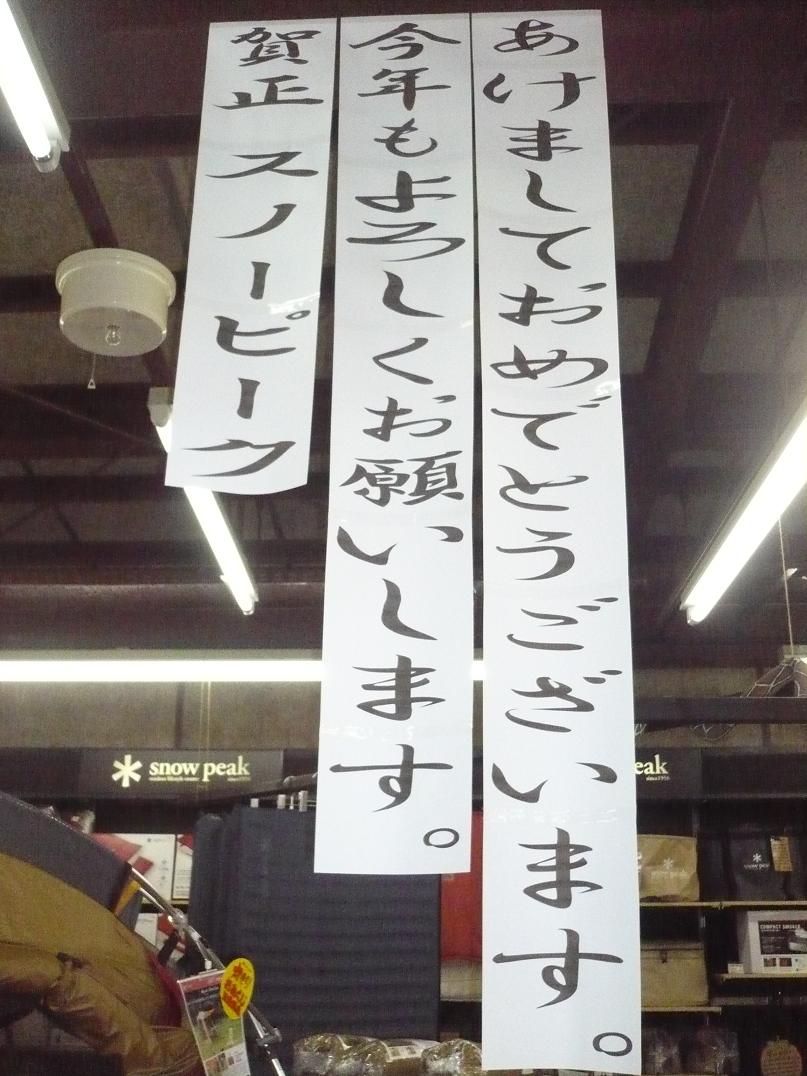 あけましておめでとうございます。
今年もよろしくお願いします。
賀正 スノーピーク
snow peak
eak
since1958
COMPACT SMOKER